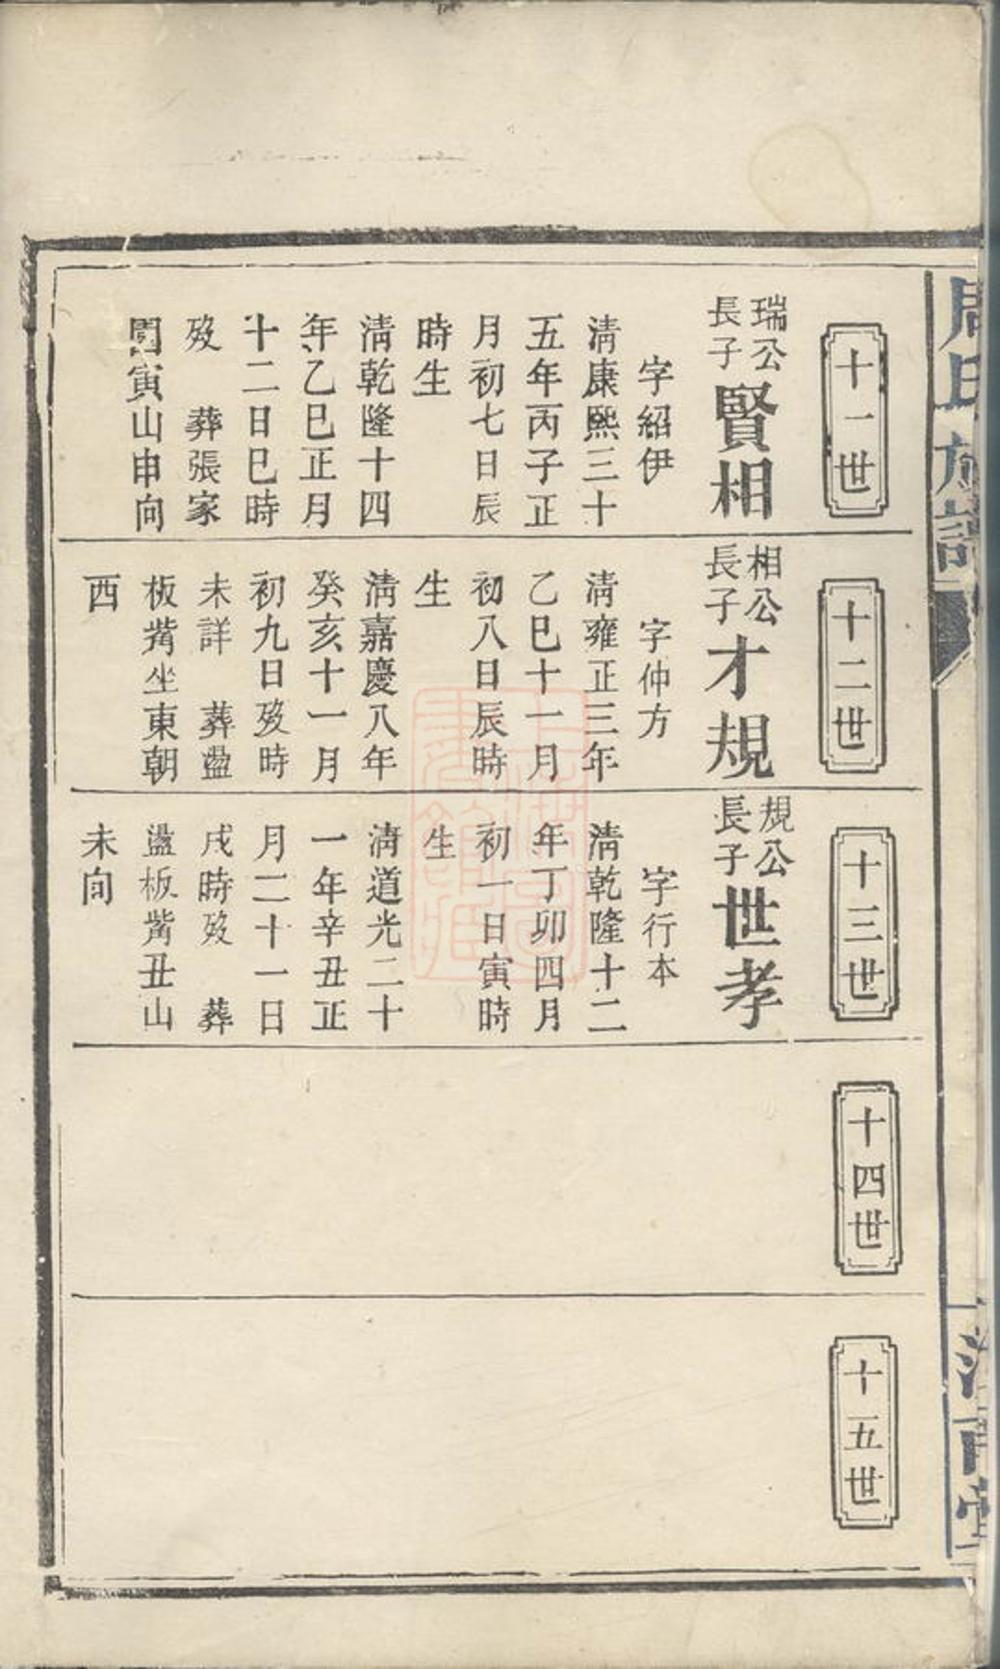 周氏族譜
十一世
瑞公
長子
賢相
字紹伊
清康熙三十
五年丙子正
月初七日辰
時生
清乾隆十四
年乙巳正月
十二日巳時
歿 葬張家
園寅山申向
十二世
相公
長子
才規
字仲方
清雍正三年
乙巳十一月
初八日辰時
生
清嘉慶八年
癸亥十一月
初九日歿時
未詳 葬盪
板觜坐東朝
西
十三世
規公
長子
世孝
字行本
清乾隆十二
年丁卯四月
初一日寅時
生
清道光二十
一年辛丑正
月二十一日
戌時歿 葬
盪板觜丑山
未向
十四世
十五世